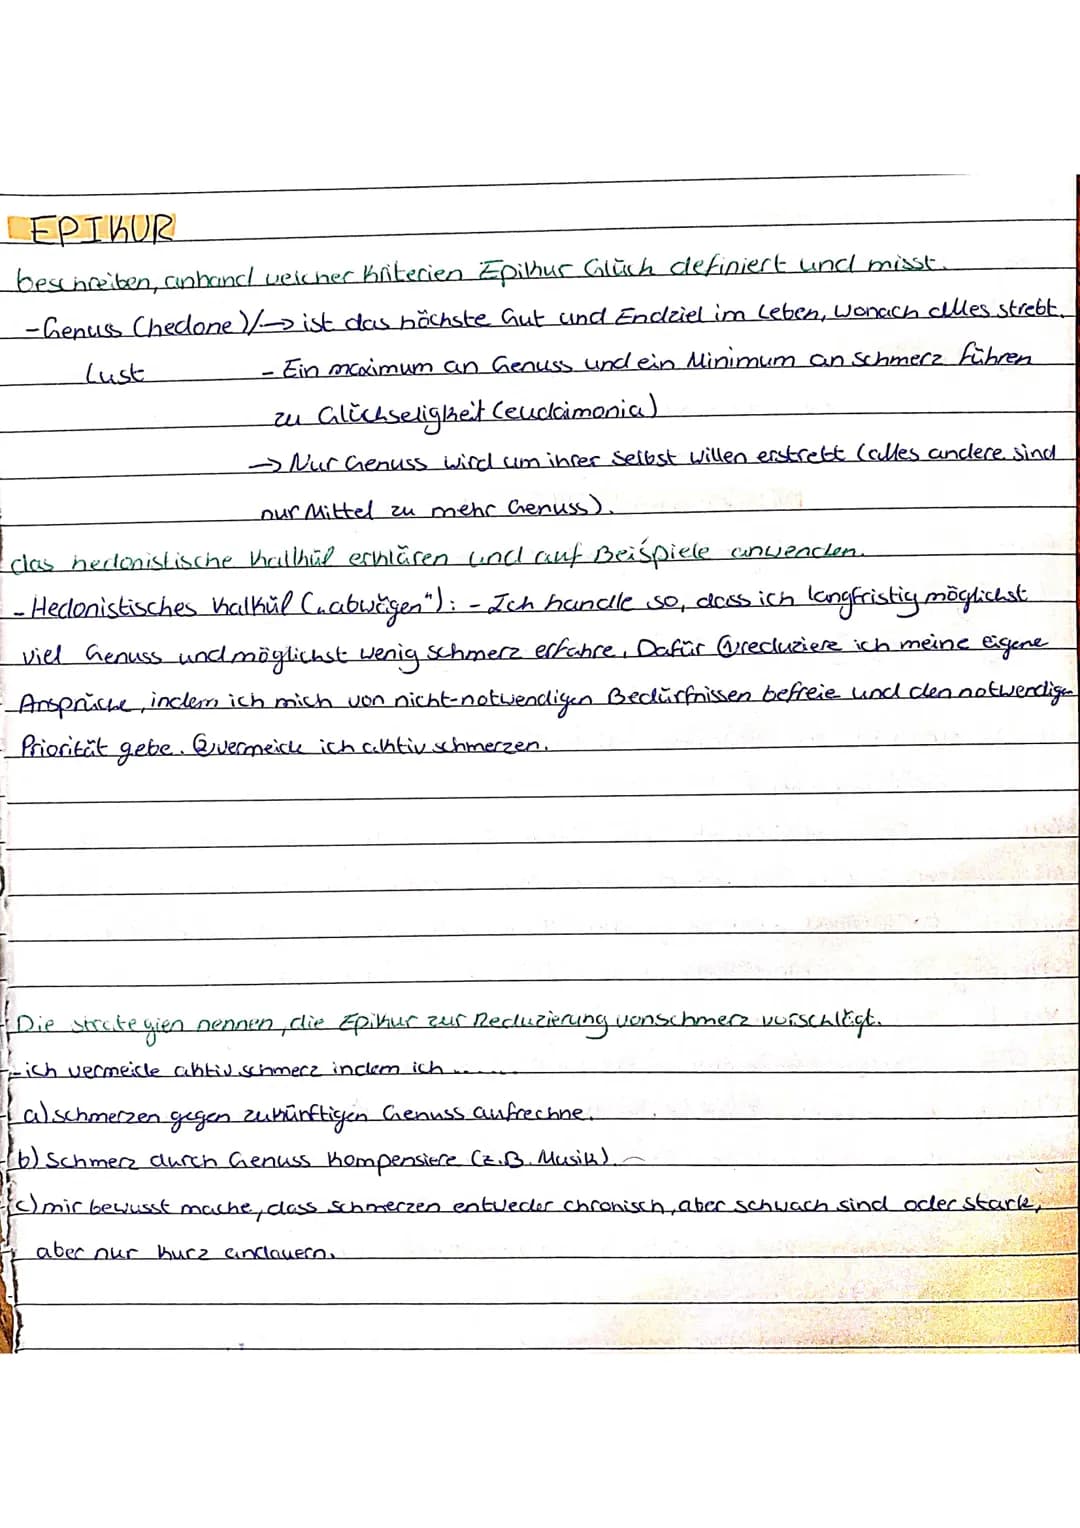 EPIKUR
beschreiben, anhand welcher Kriterien Epikur Glück definiert und misst.
- Genuss (hedone)/→ ist das höchste Gut und Endziel im Leben, wonach alles strebt.
Lust - Ein maximum an Genuss und ein Minimum an Schmerz führen
zu Glückseligkeit (eudaimonia)
→ Nur Genuss wird um ihrer selbst willen erstrebt (alles andere sind
nur Mittel zu mehr Genuss).
das hedonistische Kalkül erklären und auf Beispiele anwenden.
- Hedonistisches Kalkül („abwägen"): - Ich handle so, dass ich langfristig möglichst
viel Genuss und möglichst wenig schmerz erfahre. Dafür ①reduziere ich meine eigene
Ansprüche, indem ich mich von nicht-notwendigen Bedürfnissen befreie und den notwendigen
Priorität gebe. ②vermeide ich aktiv schmerzen.
Die strategien nennen, die Epikur zur Reduzierung von schmerz vorschlägt.
- ich vermeide aktiv schmerz indem ich ......
a) schmerzen gegen zukünftigen Genuss aufrechne.
b) Schmerz durch Genuss kompensiere (z.B. Musik).
c) mir bewusst mache, dass schmerzen entweder chronisch, aber schwach sind oder stark,
aber nur kurz andauern.